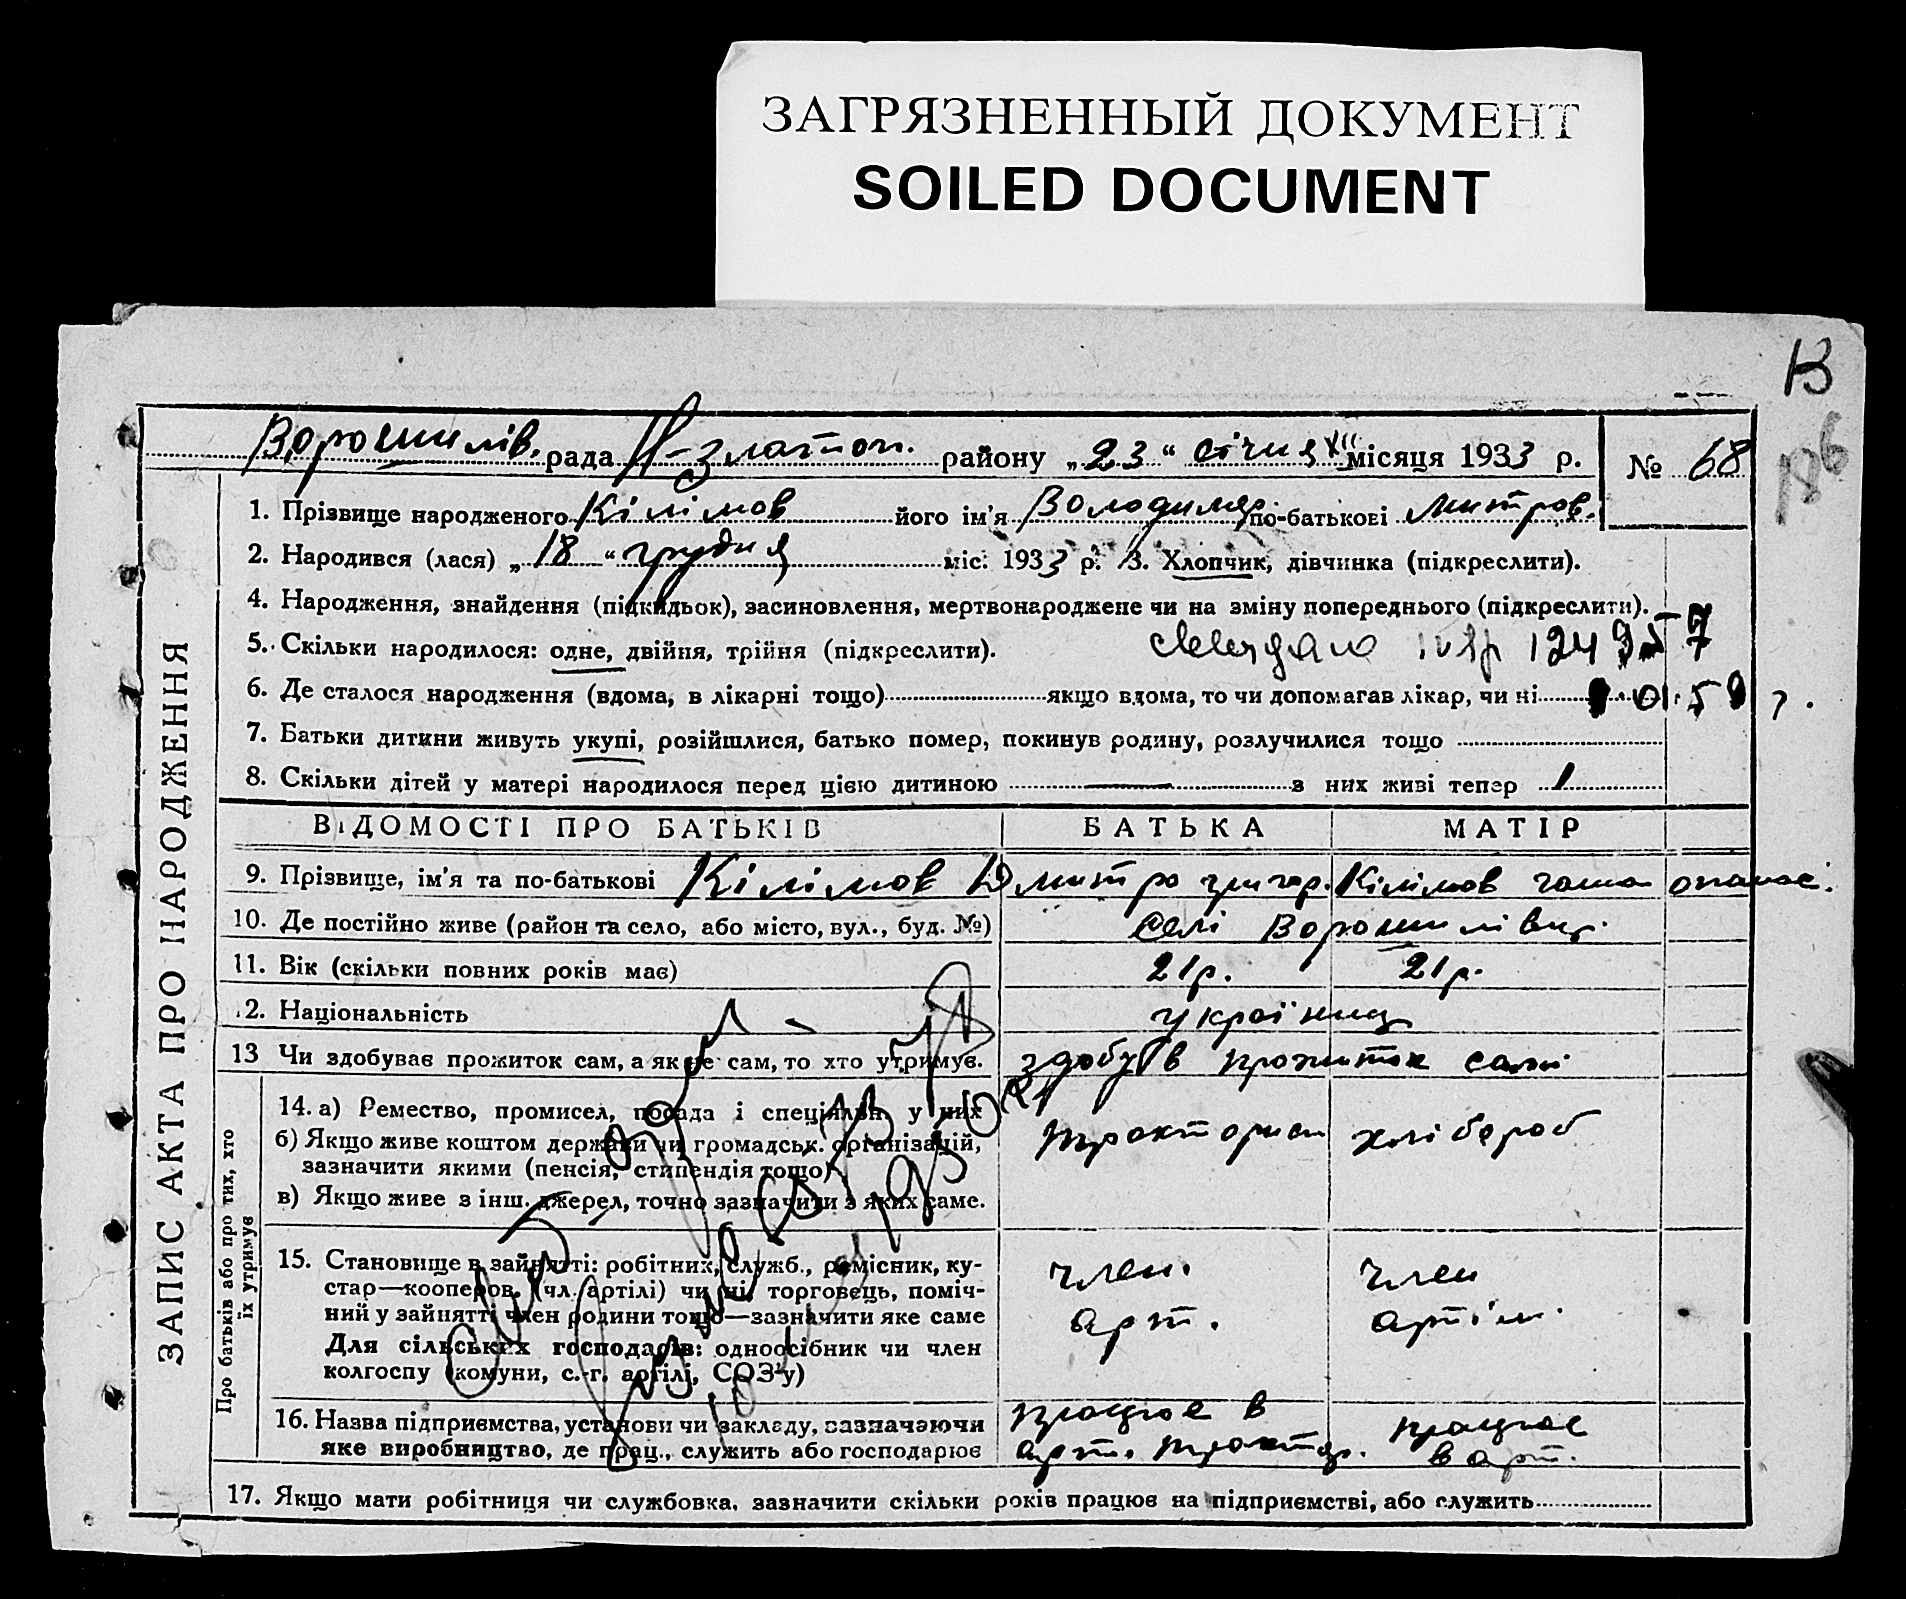 ЗАГРЯЗНЕННЫЙ ДОКУМЕНТ
SOILED DOCUMENT
В
Ворошилів. рада Н-златоп. району „23“ січня XII місяця 1933 р. № 68
1. Прізвище народженого Кілімов його ім'я Володимир по-батькові Митров.
2. Народився (лася) „18“ грудня міс. 1933 р. 3. Хлопчик, дівчинка (підкреслити).
4. Народження, знайдення (підкидьок), засиновлення, мертвонароджене чи на зміну попереднього (підкреслити).
5. Скільки народилося: одне, двійня, трійня (підкреслити).
6. Де сталося народження (вдома, в лікарні тощо) якщо вдома, то чи допомагав лікар, чи ні
7. Батьки дитини живуть укупі, розійшлися, батько помер, покинув родину, розлучилися тощо
8. Скільки дітей у матері народилося перед цією дитиною — з них живі тепер 1
ЗАПИС АКТА ПРО НАРОДЖЕННЯ
ВІДОМОСТІ ПРО БАТЬКІВ БАТЬКА МАТІР
9. Прізвище, ім'я та по-батькові Кілімов Дмитро григор. Кілімов опанас.
10. Де постійно живе (район та село, або місто, вул., буд. №) селі Ворошилівці
11. Вік (скільки повних років має) 21 р. 21 р.
12. Національність українці
13 Чи здобуває прожиток сам, а як не сам, то хто утримує. здобув прожиток самі
Про батьків або про тих, хто їх утримує
14. а) Ремество, промисел, посада і спеціяльн. у них тракторист хлібороб
б) Якщо живе коштом держави чи громадськ. організацій,
зазначити якими (пенсія, стипендія тощо)
в) Якщо живе з інш. джерел, точно зазначити з яких саме.
15. Становище в зайнятті: робітник, служб., ремісник, ку-
стар—кооперов. (чл. артілі) чи ні, торговець, поміч-
ний у зайнятті член родини тощо—зазначити яке саме
Для сільських господарів: одноосібник чи член
колгоспу (комуни, с.-г. артілі, СОЗ'у)
член. арт. член артіли
16. Назва підприємства, установи чи закладу, зазначаючи
яке виробництво, де прац., служить або господарює
працює в арт. трактор. працює в арт.
17. Якщо мати робітниця чи службовка, зазначити скільки років працює на підприємстві, або служить